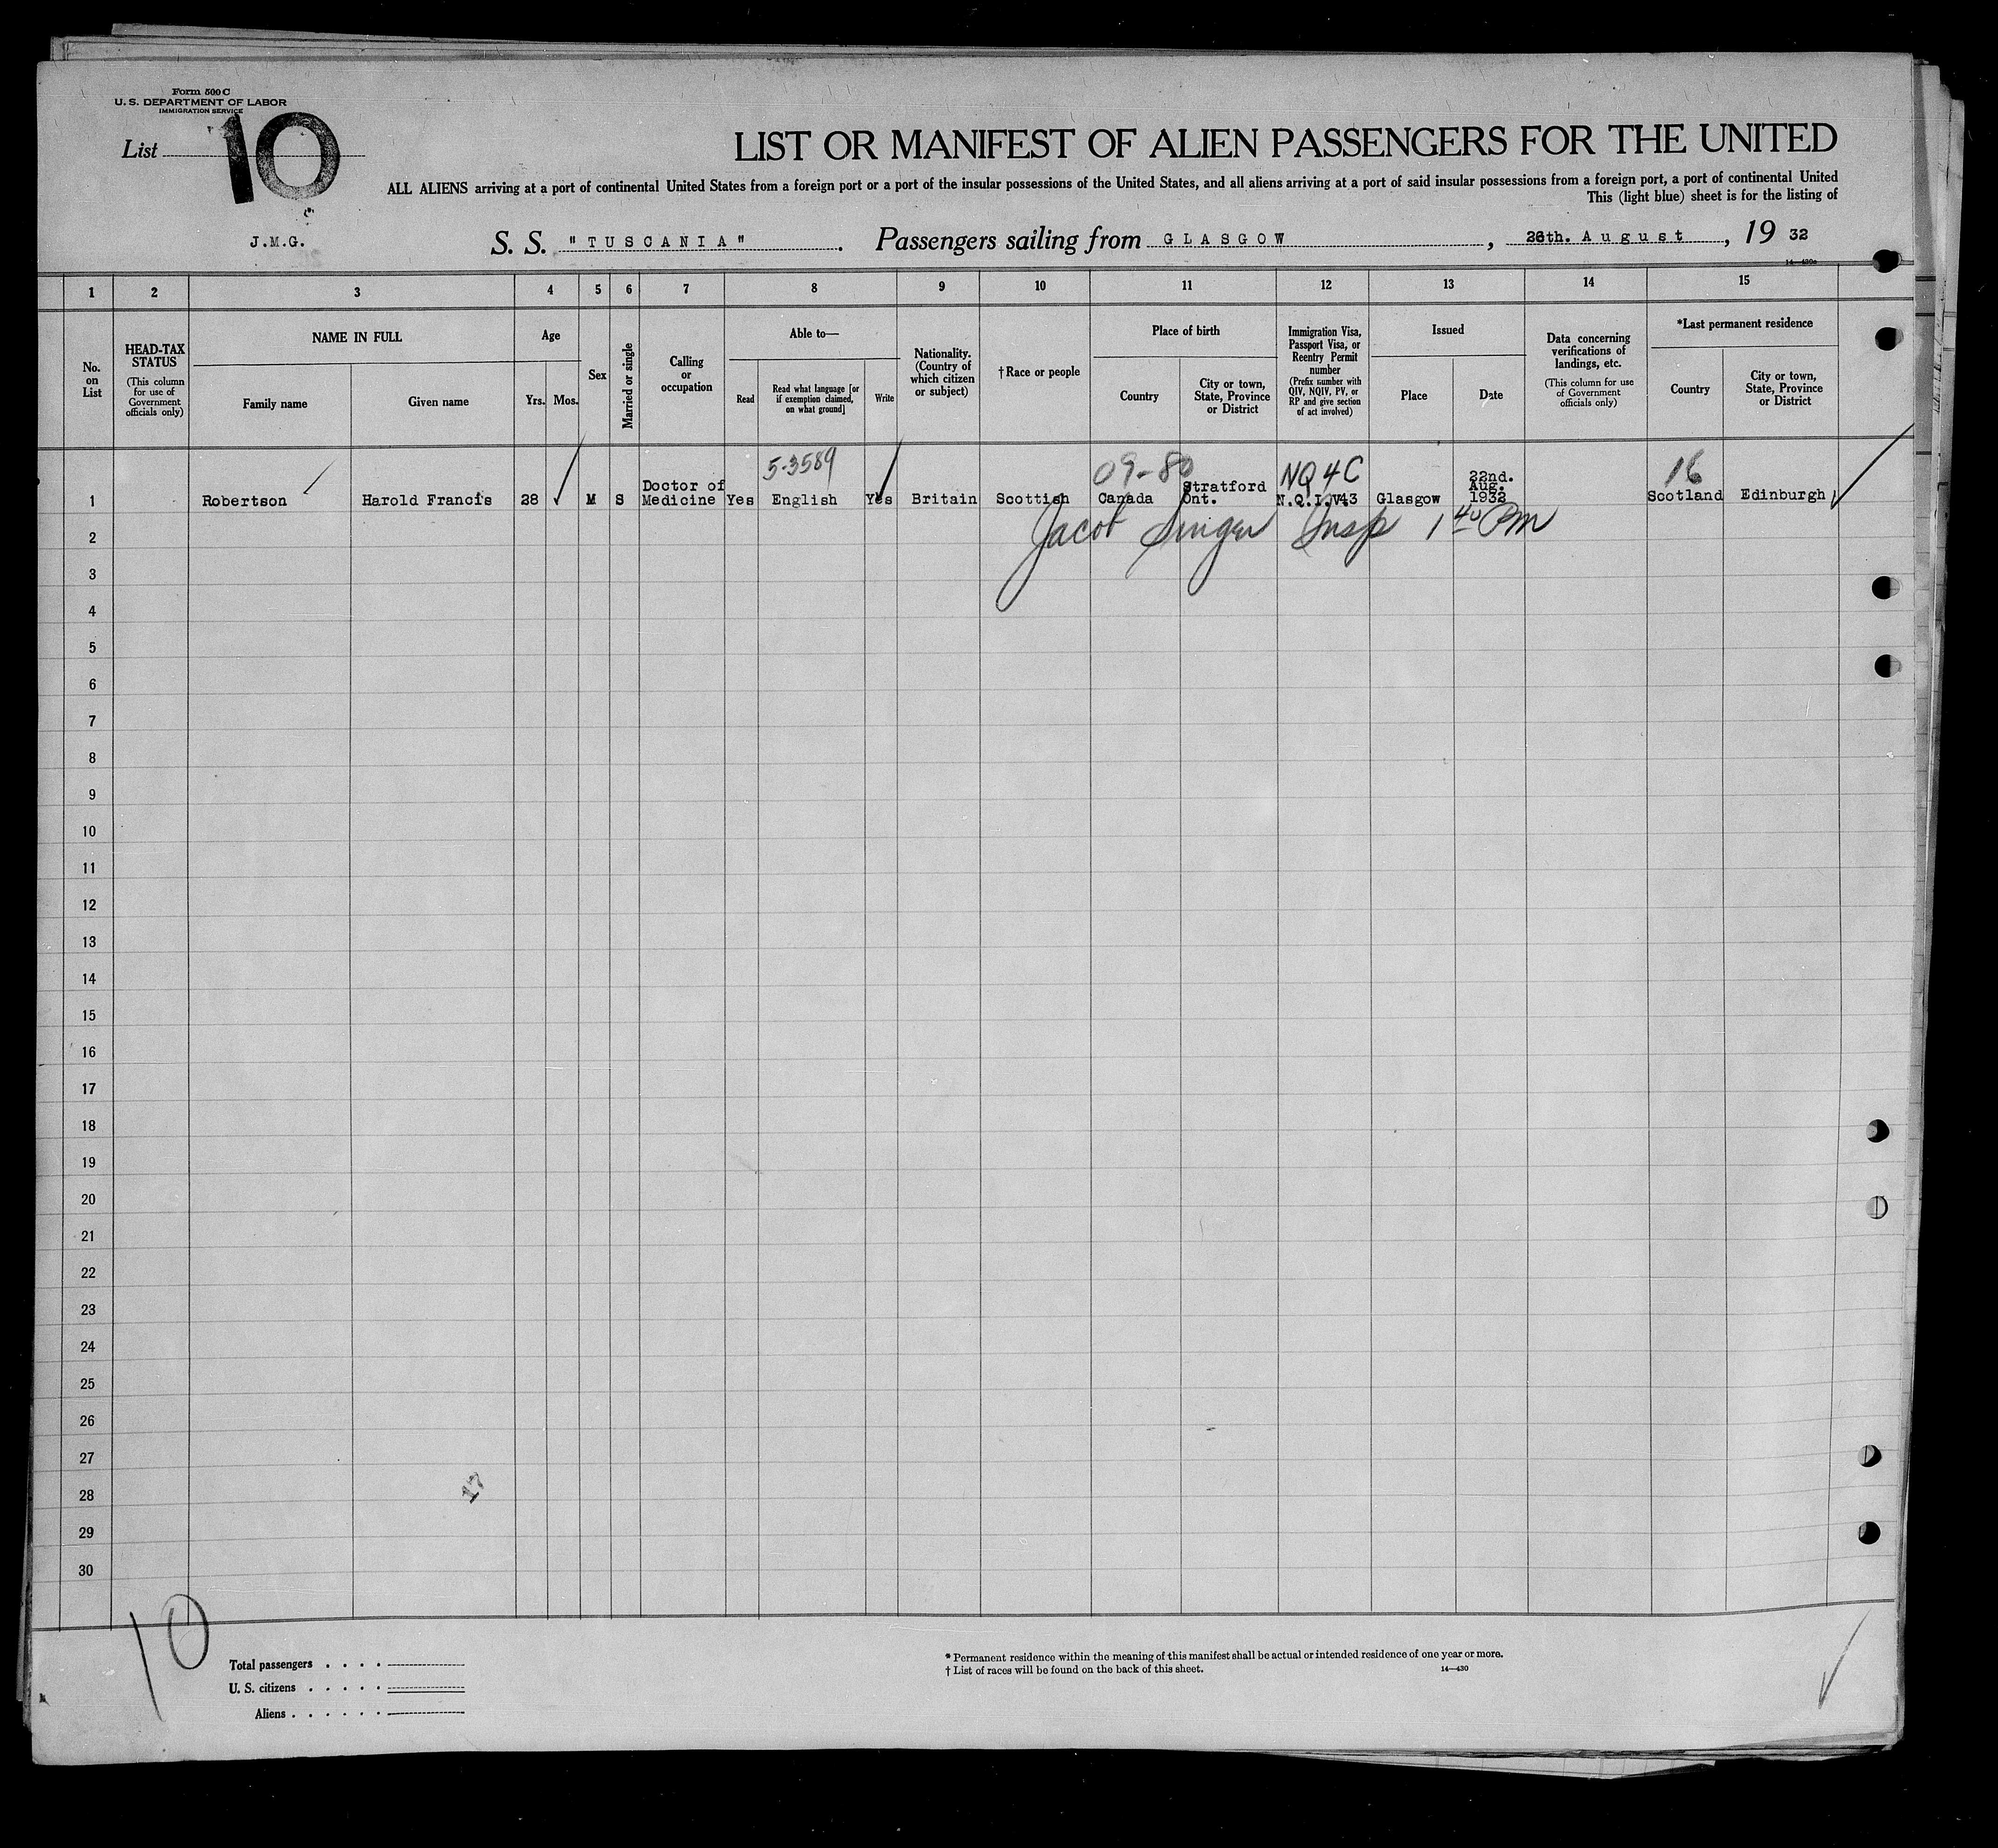 Form 500 C
U. S. DEPARTMENT OF LABOR
IMMIGRATION SERVICE
List 10
LIST OR MANIFEST OF ALIEN PASSENGERS FOR THE UNITED
ALL ALIENS arriving at a port of continental United States from a foreign port or a port of the insular possessions of the United States, and all aliens arriving at a port of said insular possessions from a foreign port, a port of continental United
This (light blue) sheet is for the listing of
J.M.G.
S. S. "TUSCANIA". Passengers sailing from GLASGOW, 26th. August, 19 32
1 2 3 4 5 6 7 8 9 10 11 12 13 14 15
No. on List
HEAD-TAX STATUS
(This column for use of Government officials only)
NAME IN FULL
Family name
Given name
Age
Yrs. Mos.
Sex
Married or single
Calling or occupation
Able to—
Read
Read what language [or if exemption claimed, on what ground]
Write
Nationality. (Country of which citizen or subject)
†Race or people
Place of birth
Country
City or town, State, Province or District
Immigration Visa, Passport Visa, or Reentry Permit number
(Prefix number with QIV, NQIV, PV, or RP and give section of act involved)
Issued
Place
Date
Data concerning verifications of landings, etc.
(This column for use of Government officials only)
*Last permanent residence
Country
City or town, State, Province or District
5-3589 09-80 NQ4C 16
1 Robertson Harold Francis 28 M S Doctor of Medicine Yes English Yes Britain Scottish Canada Stratford Ont. N.Q.I.V.43 Glasgow 22nd. Aug. 1932 Scotland Edinburgh
Jacob Singer Insp 1 40 PM
2
3
4
5
6
7
8
9
10
11
12
13
14
15
16
17
18
19
20
21
22
23
24
25
26
27
28
29
30
17
10
Total passengers . . . .
U. S. citizens . . . . .
Aliens . . . . . .
* Permanent residence within the meaning of this manifest shall be actual or intended residence of one year or more.
† List of races will be found on the back of this sheet.
14—430